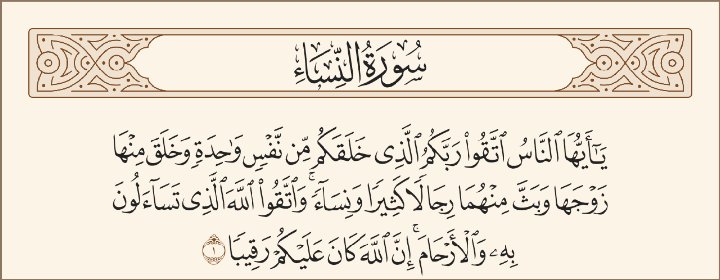 سُورَةُ النِّسَاءِ
يَٰٓأَيُّهَا ٱلنَّاسُ ٱتَّقُوا۟ رَبَّكُمُ ٱلَّذِى خَلَقَكُم مِّن نَّفْسٍ وَٰحِدَةٍ وَخَلَقَ مِنْهَا
زَوْجَهَا وَبَثَّ مِنْهُمَا رِجَالًا كَثِيرًا وَنِسَآءً ۚ وَٱتَّقُوا۟ ٱللَّهَ ٱلَّذِى تَسَآءَلُونَ
بِهِۦ وَٱلْأَرْحَامَ ۚ إِنَّ ٱللَّهَ كَانَ عَلَيْكُمْ رَقِيبًا ۝١